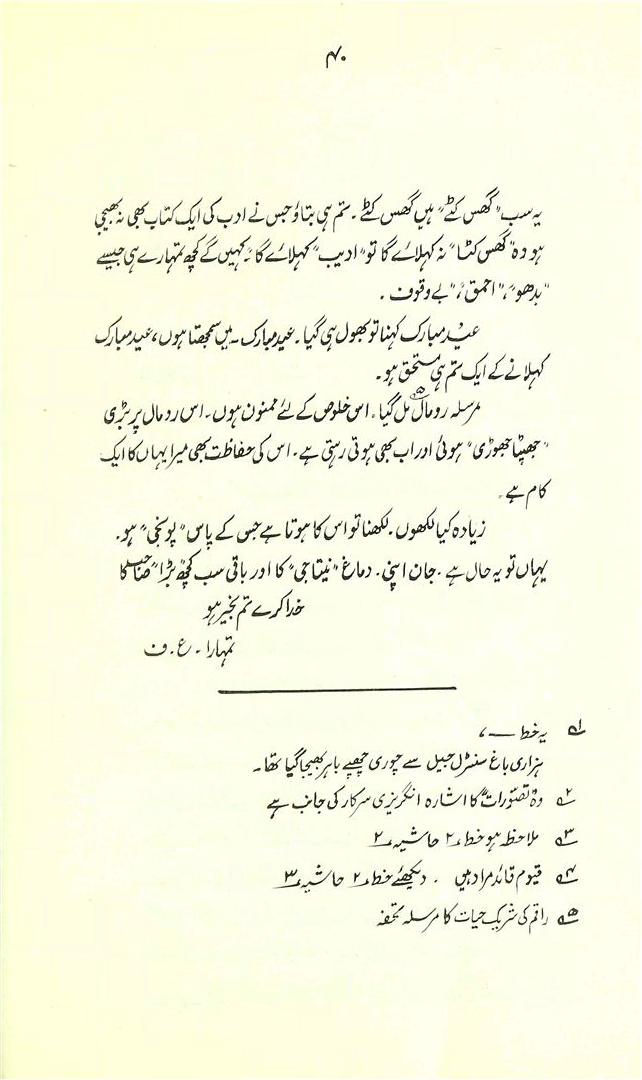 ۴۰
یہ سب "گھس کٹے" ہیں گھس کٹے۔ تم ہی بتاؤ جس نے ادب کی ایک کتاب بھی نہ بھیجی
ہو وہ "گھس کٹا" نہ کہلائے گا تو "ادیب" کہلائے گا۔ کہیں گے کچھ تمہارے ہی جیسے
"بدھو"، "احمق"، "بے وقوف۔
عید مبارک کہنا تو بھول ہی گیا۔ عید مبارک۔ میں سمجھتا ہوں، عید مبارک
کہلانے کے ایک تم ہی مستحق ہو۔
مرسلہ رومال۵ مل گیا۔ اس خلوص کے لئے ممنون ہوں۔ اس رومال پر بڑی
"جھپٹا جھوڑی" ہوئی اور اب بھی ہوتی رہتی ہے۔ اس کی حفاظت بھی میرا یہاں کا ایک
کام ہے۔
زیادہ کیا لکھوں۔ لکھنا تو اس کا ہوتا ہے جس کے پاس "پونجی" ہو۔
یہاں تو یہ حال ہے۔ جان اپنی۔ دماغ "نیتاجی" کا اور باقی سب کچھ "بڑا صاحب" کا
خدا کرے تم بخیر ہو
تمہارا۔ ع۔ ف
۱؎ یہ خط ــــ ۷
ہزاری باغ سنٹرل جیل سے چوری چھپے باہر بھیجا گیا تھا۔
۲؎ وہ تصورات کا اشارہ انگریزی سرکار کی جانب ہے
۳؎ ملاحظہ ہو خط ۲ حاشیہ ۲
۴؎ قیوم قائد مراد ہیں ۔ دیکھئے خط ۲ حاشیہ ۳
۵؎ راقم کی شریک حیات کا مرسلہ تحفہ